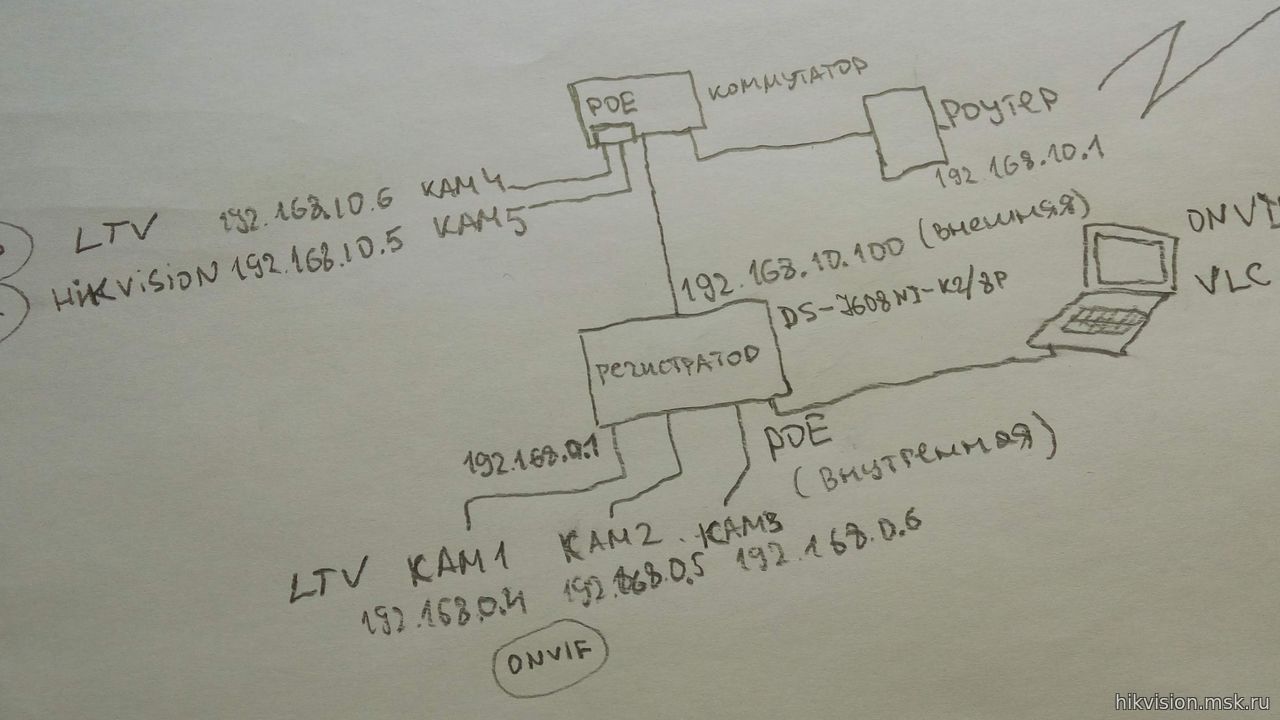 POE
коммутатор
роутер
192.168.10.1
LTV 192.168.10.6 КАМ4
HIKVISION 192.168.10.5 КАМ5
192.168.10.100 (внешняя)
DS-7608NI-K2/8P
ONVI
VLC
регистратор
192.168.0.1
POE
(внутренняя)
LTV КАМ1 КАМ2 КАМ3
192.168.0.4 192.168.0.5 192.168.0.6
ONVIF
hikvision.msk.ru